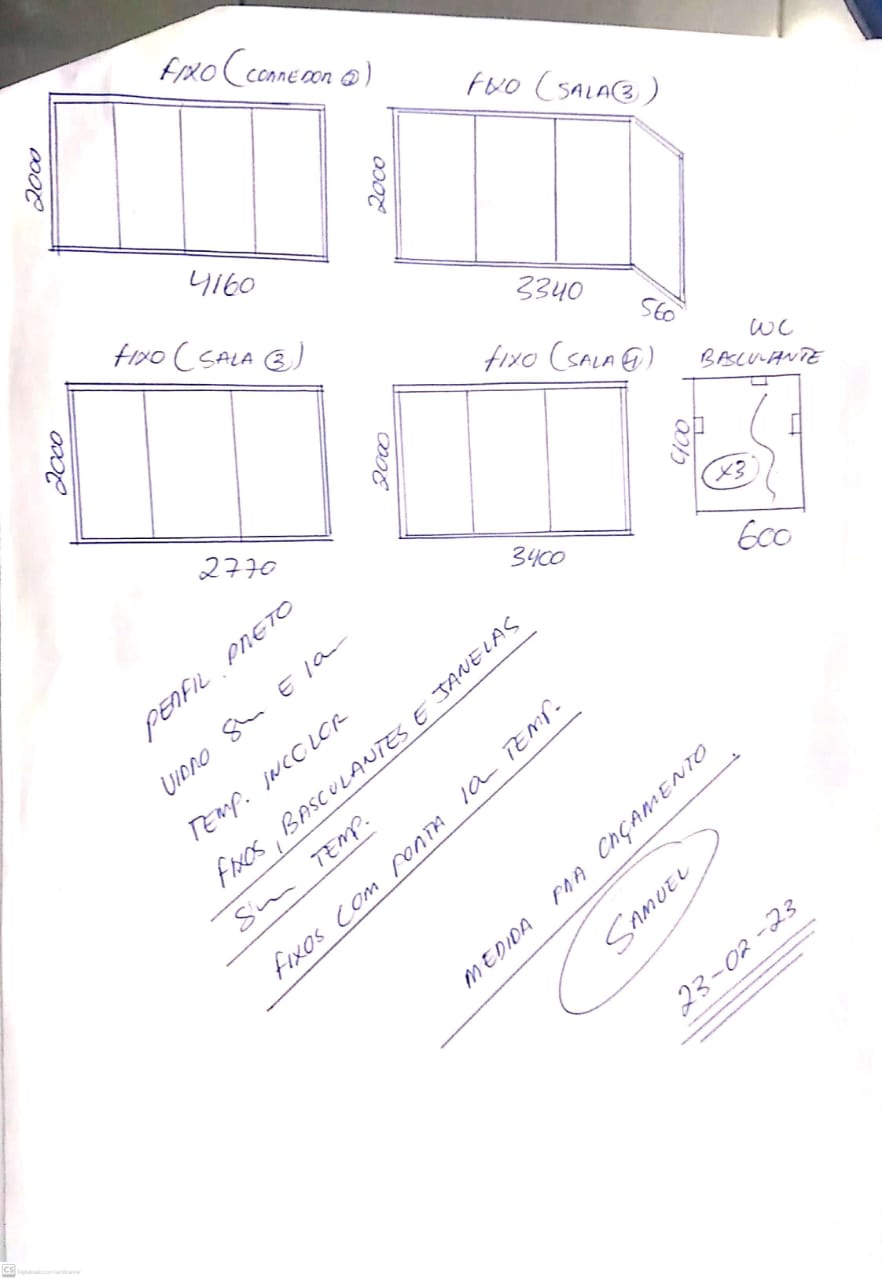 FIXO (CORREDOR 2)
FIXO (SALA 3)
2000
4160
2000
3340
560
FIXO (SALA 3)
2000
2770
FIXO (SALA 4)
2000
3400
WC
BASCULANTE
400
X3
600
PERFIL PRETO
VIDRO 8m E 10m
TEMP. INCOLOR
FIXOS, BASCULANTES E JANELAS
8m TEMP.
FIXOS COM PORTA 10m TEMP.
MEDIDA PRA ORÇAMENTO.
SAMUEL
23-02-23
CS